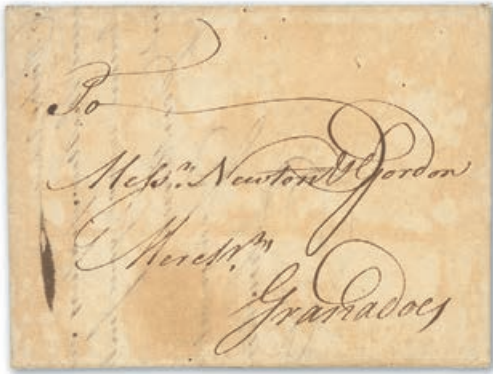 To
Messrs. Newton & Gordon
Merchts
Granadoes